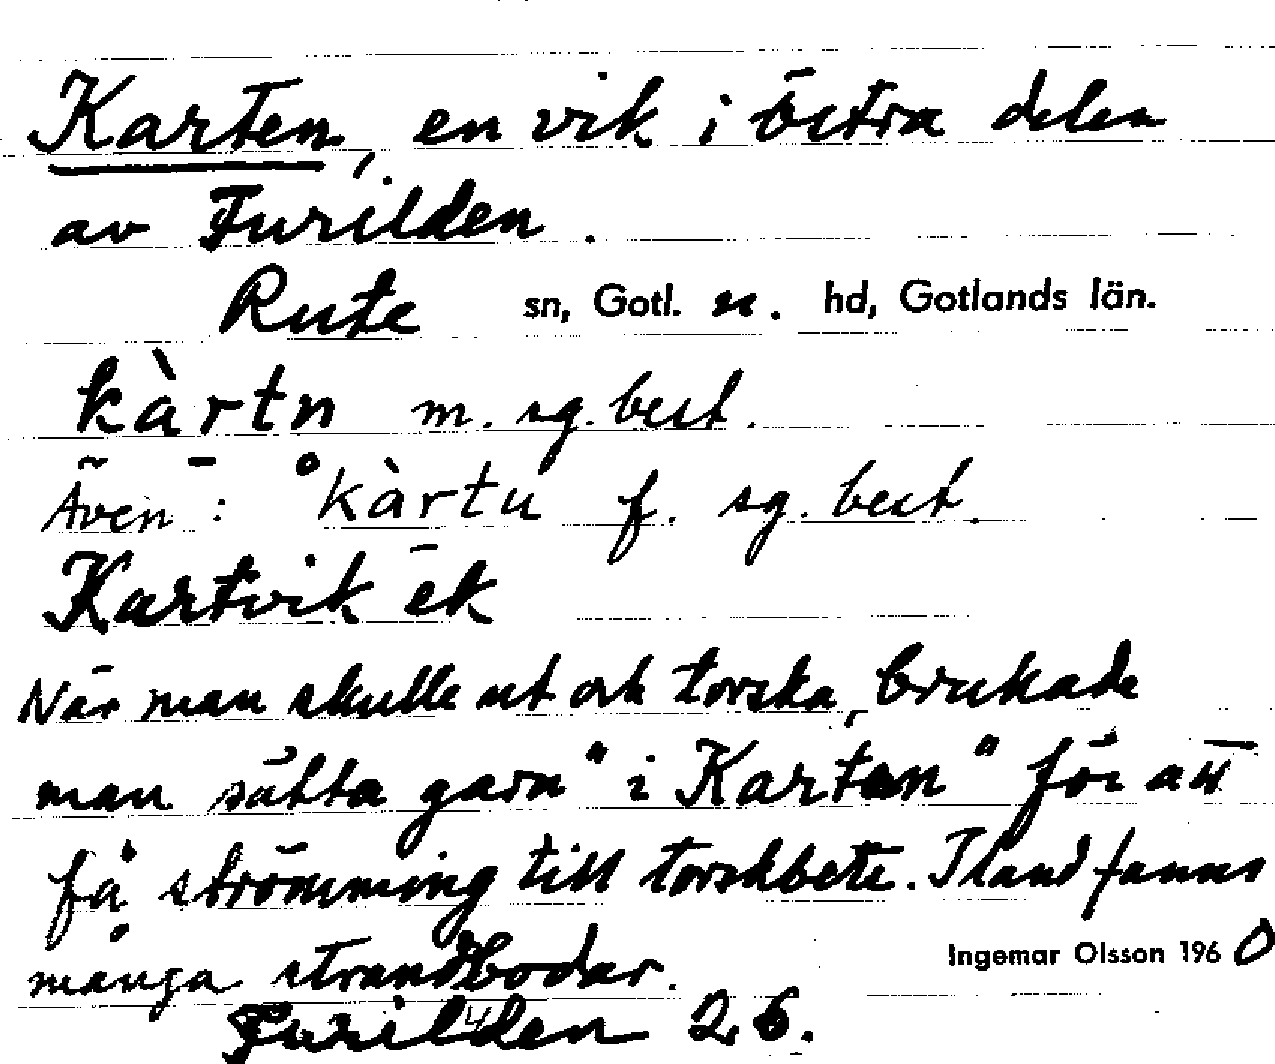 Karten, en vik i östra delen
av Furilden.
Rute sn, Gotl. n. hd, Gotlands län.
kàrtn m. sg. best.
Även: kàrtu f. sg. best.
Kartvik ék
När man skulle ut och torska, brukade
man sätta garn "i Karten" för att
få strömming till torskbete. Iland fanns
många strandbodar.
Ingemar Olsson 1960
Furilden 2, 6.